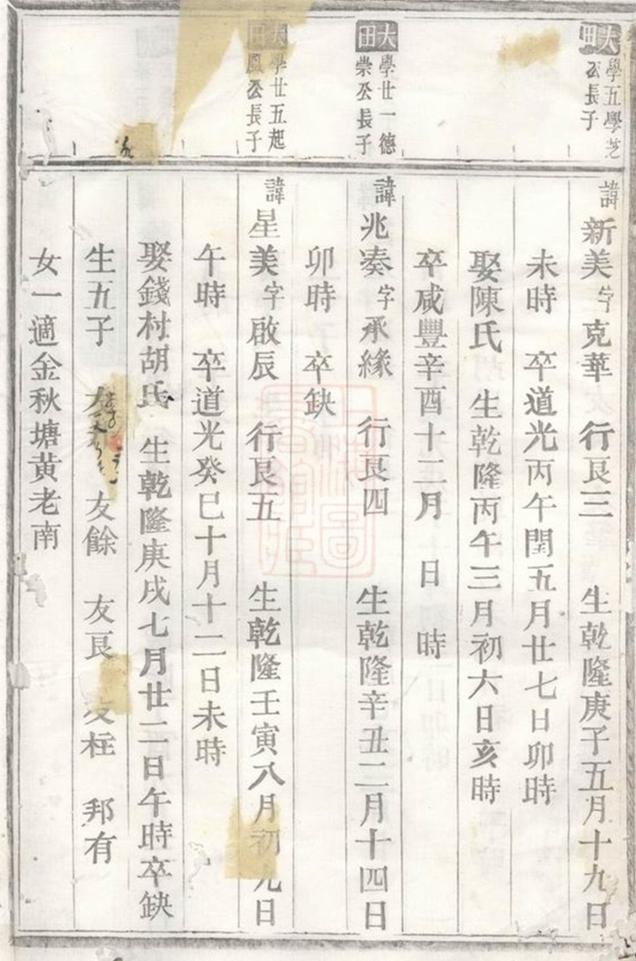 大田 學五學芝
公長子
諱新美 字克華 行良三 生乾隆庚子五月十九日
未時 卒道光丙午閏五月廿七日卯時
娶陳氏 生乾隆丙午三月初六日亥時
卒咸豐辛酉十二月 日 時
大田 學廿一德
崇公長子
諱兆奏 字承緣 行良四 生乾隆辛丑二月十四日
卯時 卒缺
大田 學廿五起
鳳公長子
諱星美 字啟辰 行良五 生乾隆壬寅八月初九日
午時 卒道光癸巳十月十二日未時
娶錢村胡氏 生乾隆庚戌七月廿二日午時卒缺
生五子 友餘 友良 友柱 邦有
女一適金秋塘黃老南